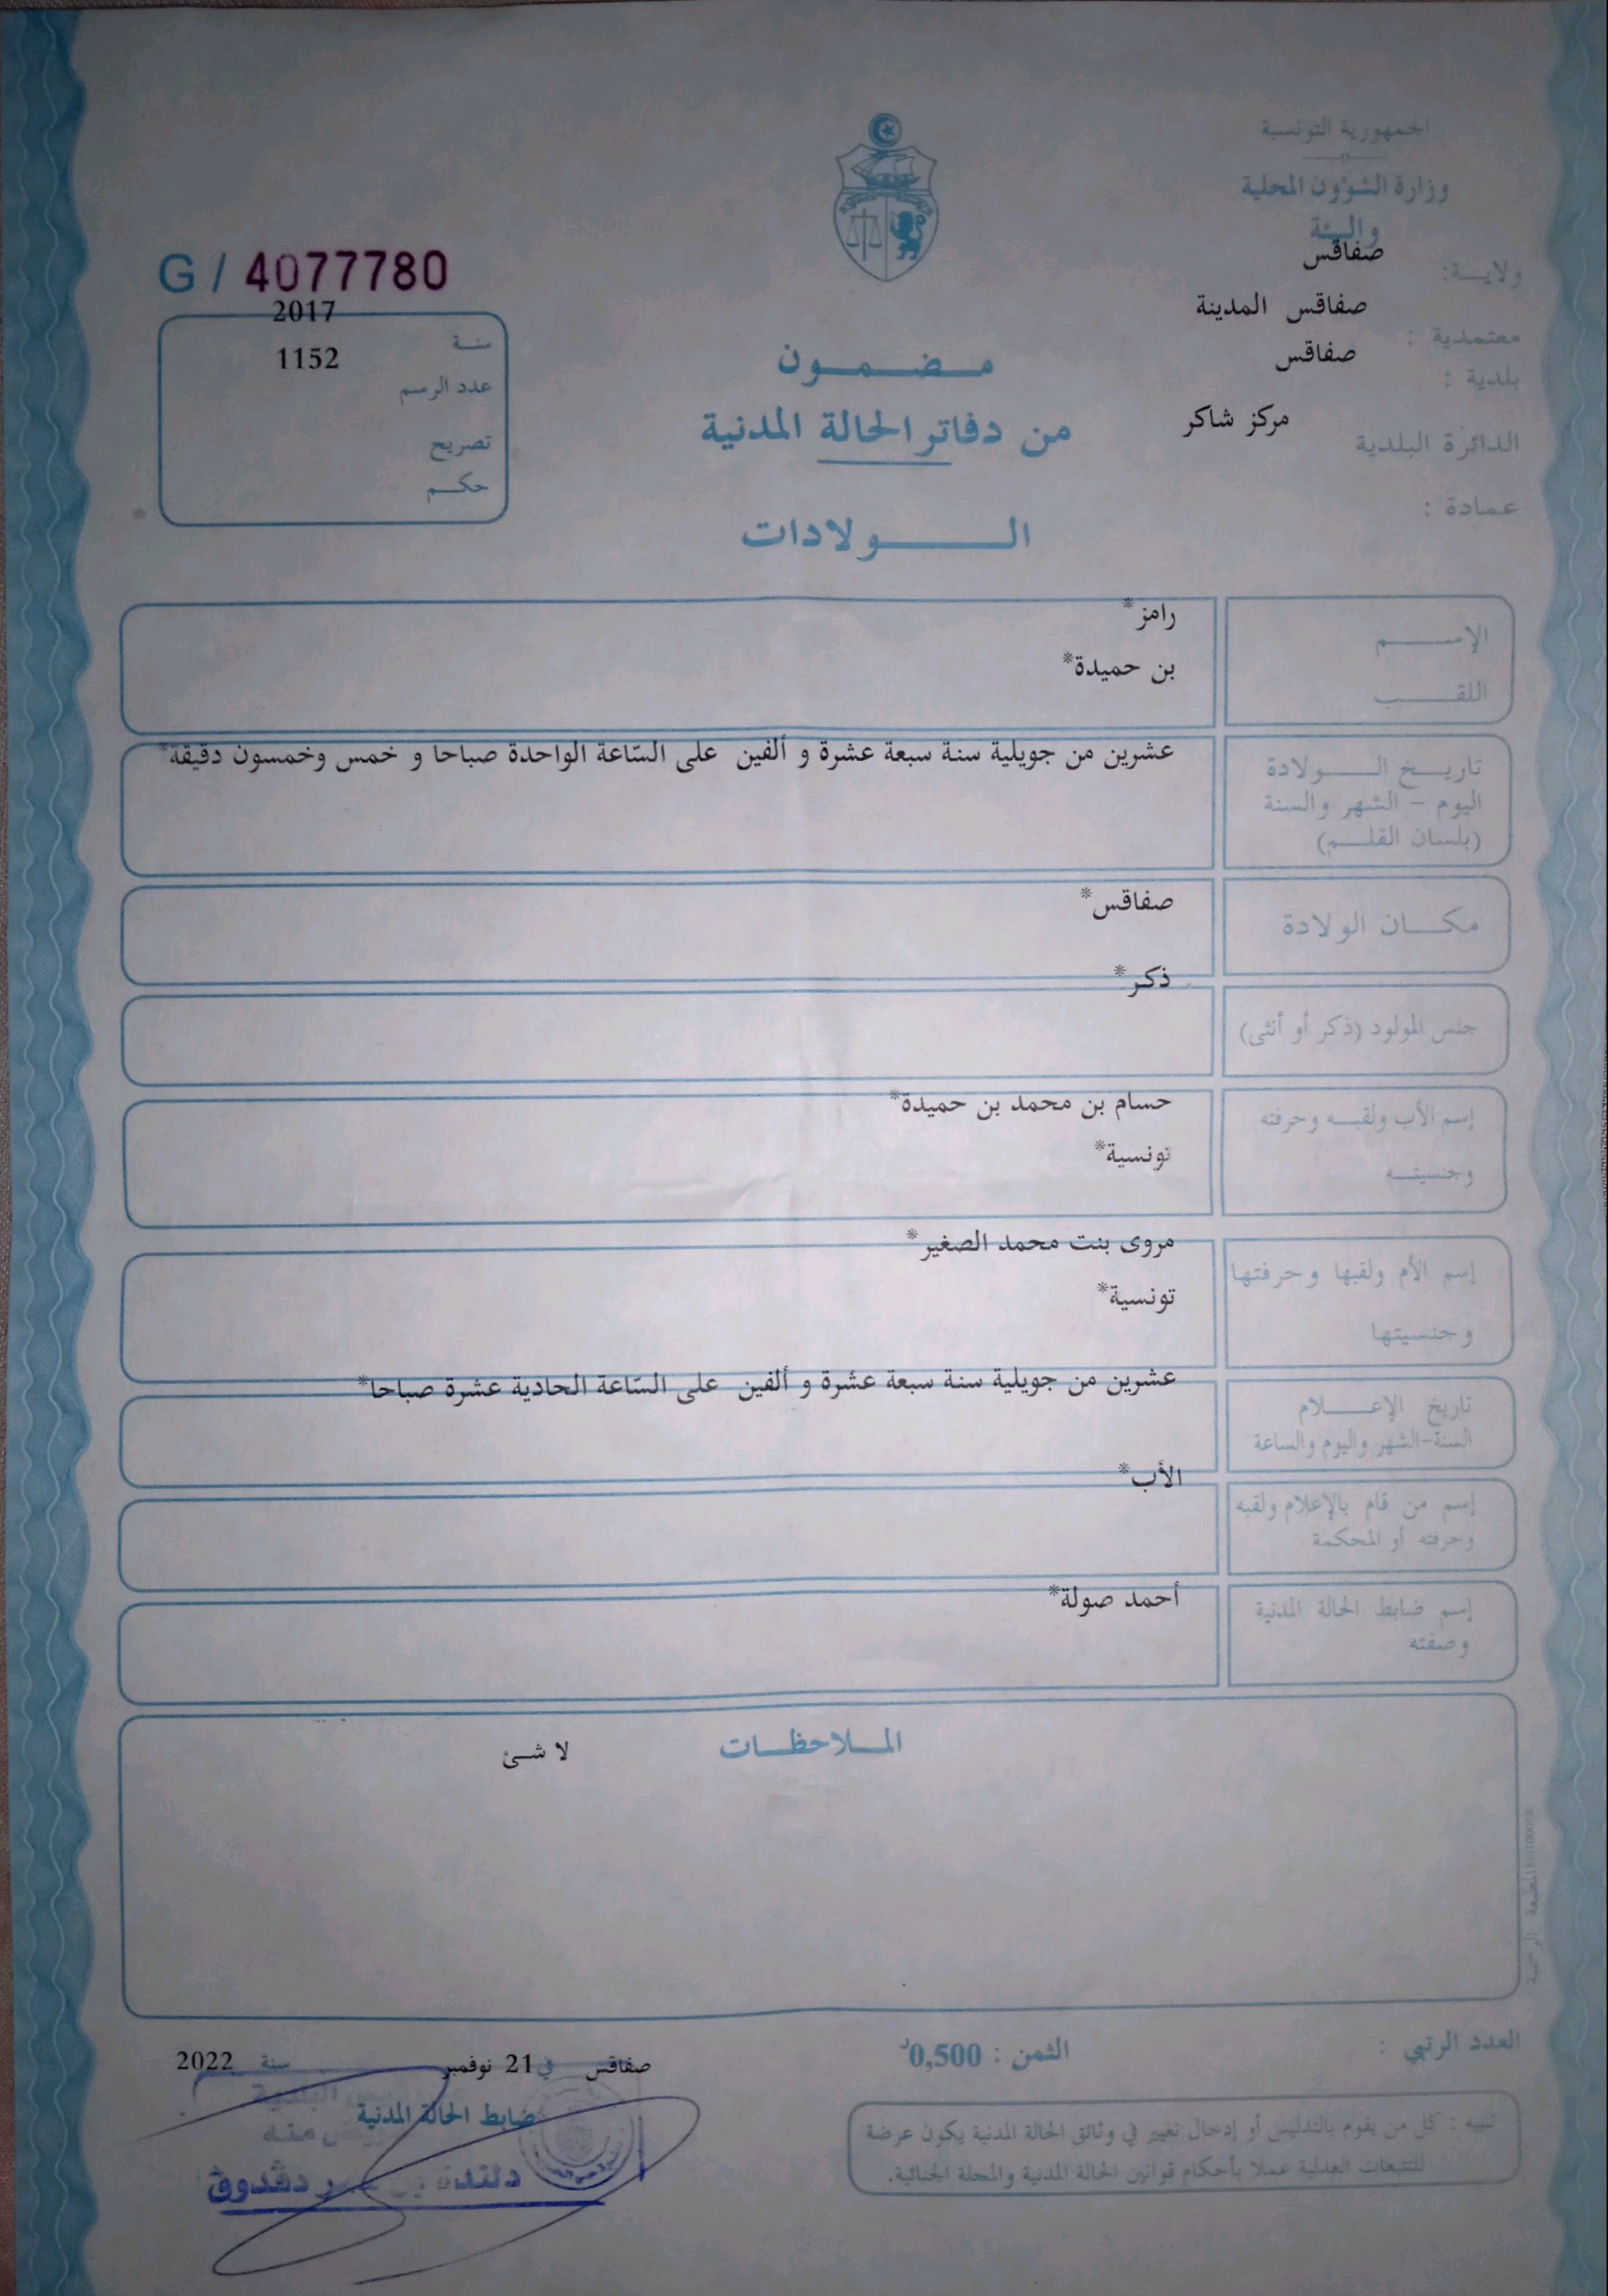 الجمهورية التونسية
وزارة الشؤون المحلية
والبيئة
ولاية: صفاقس
معتمدية : صفاقس المدينة
بلدية : صفاقس
الدائرة البلدية مركز شاكر
عمادة :
G / 4077780
سنة 2017
عدد الرسم 1152
تصريح
حكم
مضمون
من دفاتر الحالة المدنية
الولادات
الإسم رامز*
اللقب بن حميدة*
تاريخ الولادة عشرين من جويلية سنة سبعة عشرة و ألفين على السّاعة الواحدة صباحا و خمس وخمسون دقيقة*
اليوم - الشهر والسنة
(بلسان القلم)
مكان الولادة صفاقس*
جنس المولود (ذكر أو أنثى) ذكر*
إسم الأب ولقبه وحرفته حسام بن محمد بن حميدة*
وجنسيته تونسية*
إسم الأم ولقبها وحرفتها مروى بنت محمد الصغير*
وجنسيتها تونسية*
تاريخ الإعلام عشرين من جويلية سنة سبعة عشرة و ألفين على السّاعة الحادية عشرة صباحا*
السنة-الشهر واليوم والساعة
إسم من قام بالإعلام ولقبه الأب*
وحرفته أو المحكمة
إسم ضابط الحالة المدنية أحمد صولة*
وصفته
الملاحظات لا شئ
العدد الرتبي :
الثمن : 0,500د
صفاقس في 21 نوفمبر سنة 2022
ضابط الحالة المدنية
تنبيه : كل من يقوم بالتدليس أو إدخال تغيير في وثائق الحالة المدنية يكون عرضة
للتتبعات العدلية عملا بأحكام قوانين الحالة المدنية والمجلة الجنائية.